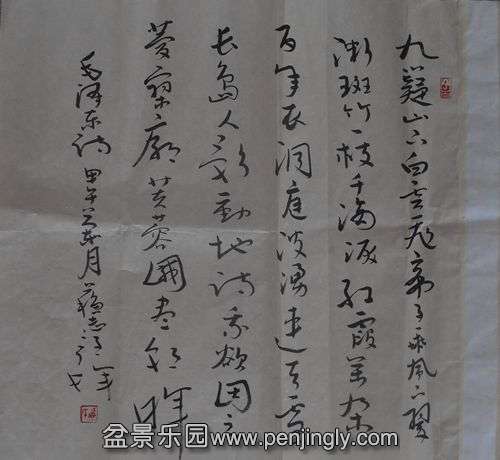 九疑山上白云飞帝子乘风下翠
微斑竹一枝千滴泪红霞万朵
百重衣洞庭波涌连天雪
长岛人歌动地诗我欲因之
梦寥廓芙蓉國尽朝晖
毛泽东诗 甲午 月
盆景乐园www.penjingly.com